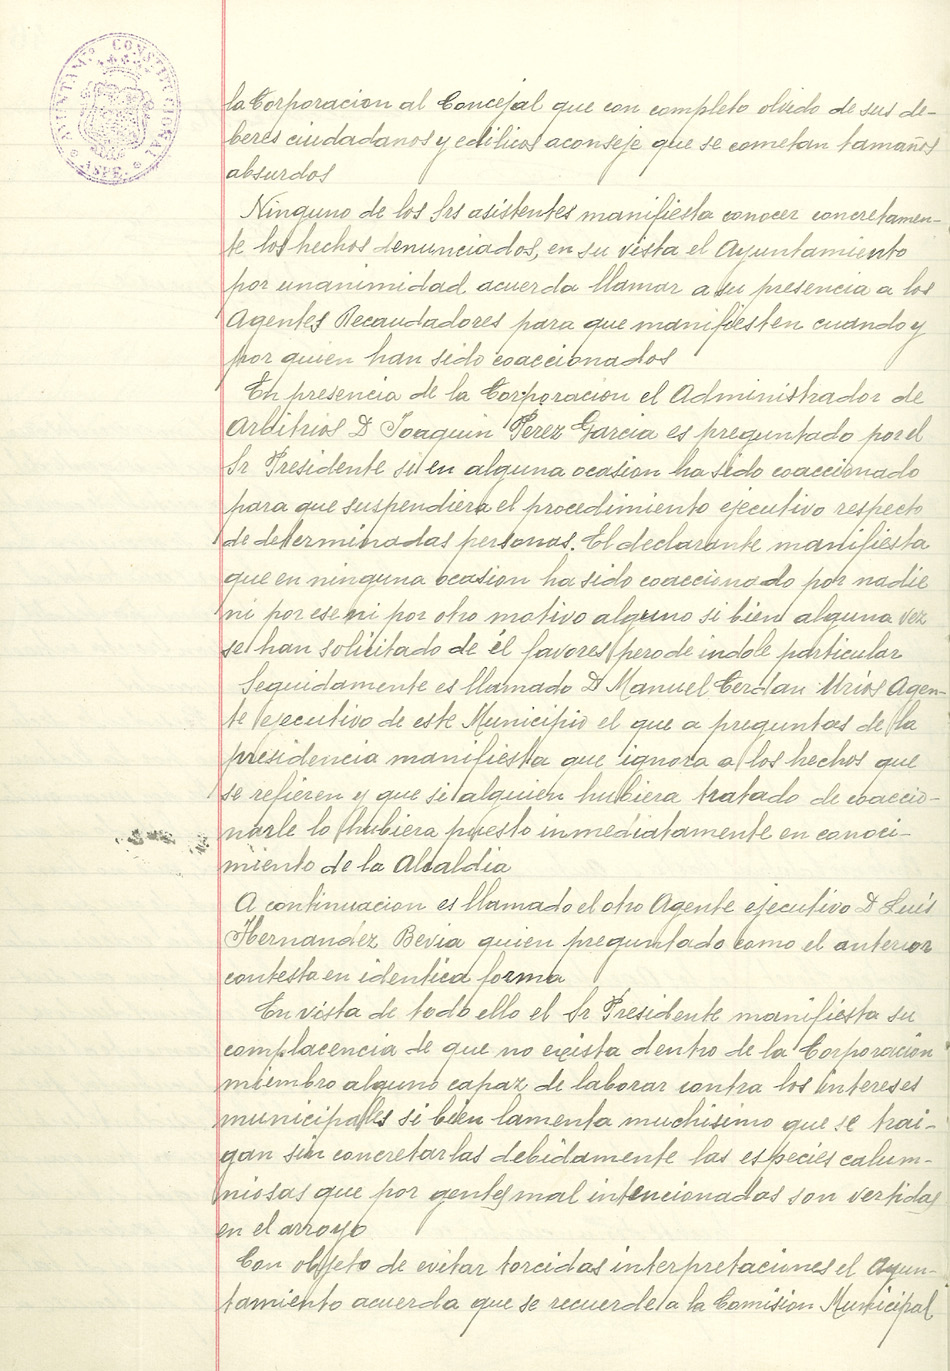 AYUNTAMº. CONSTITUCIONAL
* ASPE. *
la Corporacion al Concejal que con completo olvido de sus de-
beres ciudadanos y edilicios aconseje que se cometan tamaños
absurdos
Ninguno de los Srs asistentes manifiesta conocer concretamen-
te los hechos denunciados, en su vista el Ayuntamiento
por unanimidad acuerda llamar a su presencia a los
Agentes Recaudadores para que manifiesten cuando y
por quien han sido coaccionados
En presencia de la Corporacion el Administrador de
Arbitrios D Joaquin Perez Garcia es preguntado por el
Sr Presidente si en alguna ocasion ha sido coaccionado
para que suspendiera el procedimiento ejecutivo respecto
de determinadas personas. El declarante manifiesta
que en ninguna ocasion ha sido coaccionado por nadie
ni por ese ni por otro motivo alguno si bien alguna vez
se han solicitado de él favores pero de indole particular
Seguidamente es llamado D Manuel Cerdan Urios Agen-
te ejecutivo de este Municipio el que a preguntas de la
presidencia manifiesta que ignora a los hechos que
se refieren y que si alguien hubiera tratado de coaccio-
narle lo hubiera puesto inmediatamente en conoci-
miento de la Alcaldia
A continuacion es llamado el otro Agente ejecutivo D Luis
Hernandez Bevia quien preguntado como el anterior
contesta en identica forma
En vista de todo ello el Sr Presidente manifiesta su
complacencia de que no exista dentro de la Corporacion
miembro alguno capaz de laborar contra los intereses
municipales si bien lamenta muchisimo que se trai-
gan sin concretarlas debidamente las especies calum-
niosas que por gentes mal intencionadas son vertidas
en el arroyo
Con objeto de evitar torcidas interpretaciones el Ayun-
tamiento acuerda que se recuerde a la Comision Municipal